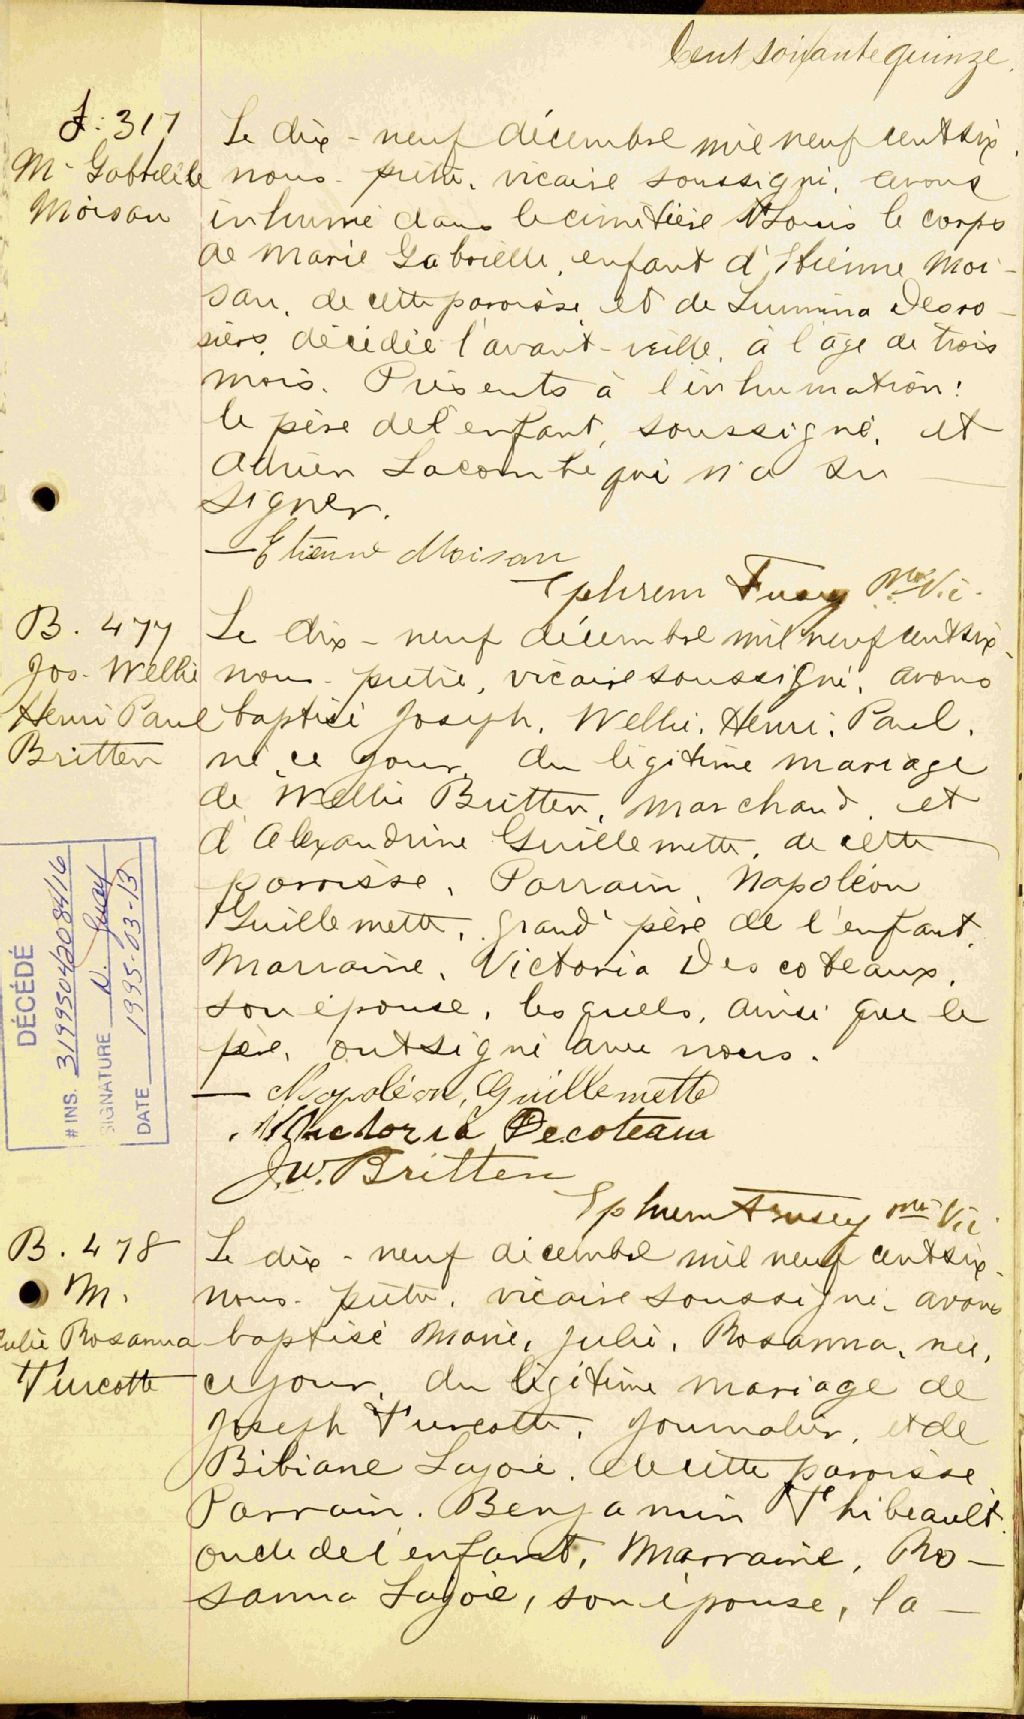 Cent soixante quinze.
S: 317
M- Gabrielle
Moisan
Le dix-neuf décembre mil neuf cent six.
nous prêtre, vicaire soussigné, avons
inhumé dans le cimetière St Louis le corps
de Marie Gabrielle, enfant d'Etienne Moi-
san, de cette paroisse, et de Lumina Desro-
siers, décédée l'avant-veille, à l'âge de trois
mois. Présents à l'inhumation:
le père de l'enfant, soussigné, et
Adrien Lacombe qui n'a su
signer.
Etienne Moisan
Ephrem Fusey Ptre Vic.
B. 477
Jos. Wellie
Henri Paul
Britten
Le dix-neuf décembre mil neuf cent six,
nous prêtre, vicaire soussigné, avons
baptisé Joseph, Wellie, Henri, Paul,
né ce jour, du légitime mariage
de Wellie Britten, marchand, et
d'Alexandrine Guillemette, de cette
paroisse. Parrain, Napoléon
Guillemette, grand père de l'enfant.
Marraine, Victoria Descoteaux,
son épouse, lesquels, ainsi que le
père, ont signé avec nous.
Napoléon Guillemette
Victoria Decoteaux
J.W. Britten
Ephrem Fusey ptre Vic.
DÉCÉDÉ
# INS. 319950420 8416
SIGNATURE N. Guay
DATE 1995-03-13
B. 478
M.
Julie Rosanna
Turcotte
Le dix-neuf décembre mil neuf cent six,
nous prêtre, vicaire soussigné, avons
baptisé Marie, Julie, Rosanna, née,
ce jour, du légitime mariage de
Joseph Turcotte, journalier, et de
Bibiane Lajoie, de cette paroisse
Parrain. Benjamin Thibeault.
oncle de l'enfant, Marraine, Ro-
sanna Lajoie, son épouse, la-